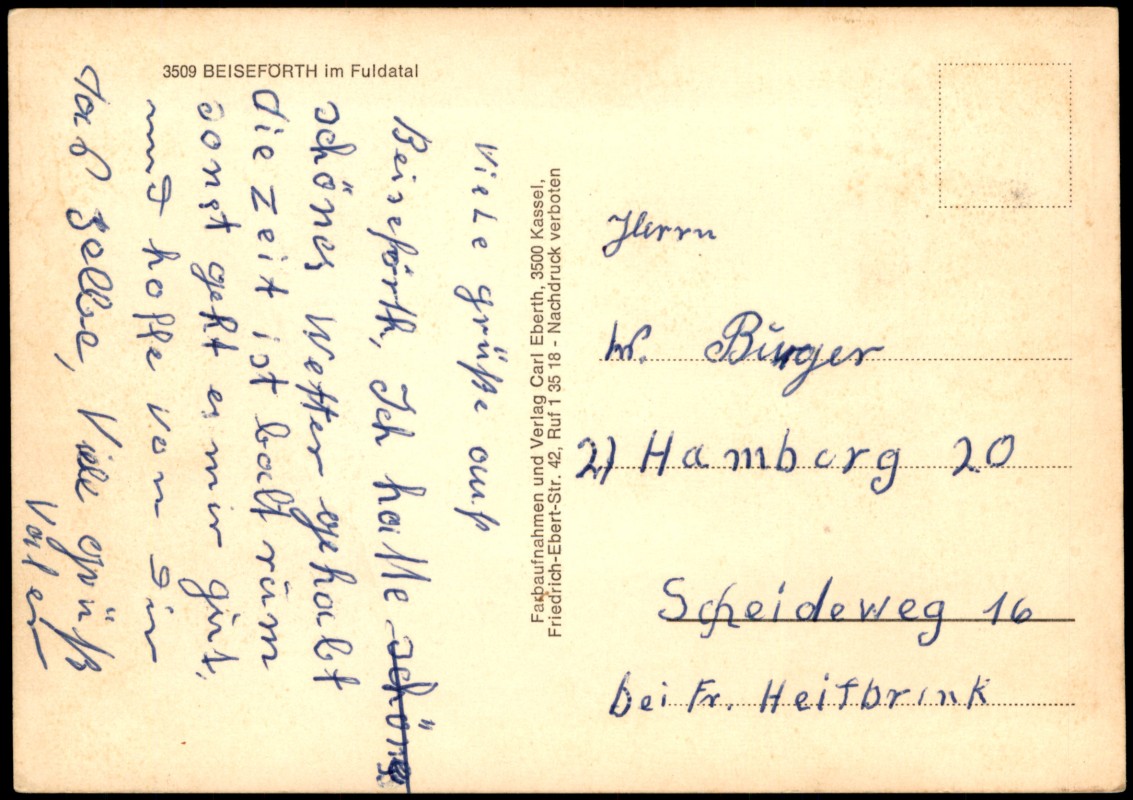 3509 BEISEFÖRTH im Fuldatal
Viele grüße auß
Beiseförth, Ich hatte schöne
schönes Wetter gehabt
die zeit ist balt rum
sonst geht es mir gut,
und hoffe von dir
daß selbe, Viele grüß
Vater
Farbaufnahmen und Verlag Carl Eberth, 3500 Kassel,
Friedrich-Ebert-Str. 42, Ruf 1 35 18 - Nachdruck verboten
Herrn
W. Burger
2) Hamborg 20
Scheideweg 16
bei Fr. Heitbrink